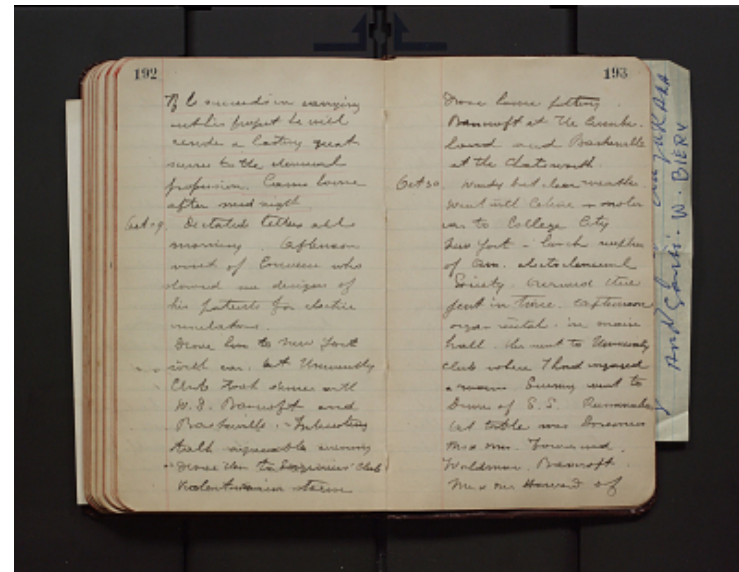 192
If he succeeds in carrying
out his project he will
render a lasting great
service to the chemical
profession. Came home
after mid night
Oct 29. Dictated letters all
morning. Afternoon
visit of who
showed me designs of
his patents for electric
Drove him to New York
with car. At University
Club took dinner with
W.D. Bancroft and
Baskerville. Interesting
talk agreeable evening
Drove them to Engineers' Club
Violent rain storm
193
Drove home putting
Bancroft at the
and Baskerville
at the Chatsworth.
Oct 30. Windy but clear weather
Went with Celine in motor
car to College City
New York - lunch
of Am. electrochemical
Society. Arrived there
just in time. Afternoon
organ recital in main
hall. Then went to University
Club where I had engaged
a room. Evening went to
Dinner of S.S.
At table was
Mr & Mrs. Townsend,
Waldman, Bancroft.
Mr & Mrs of
W. BIERY